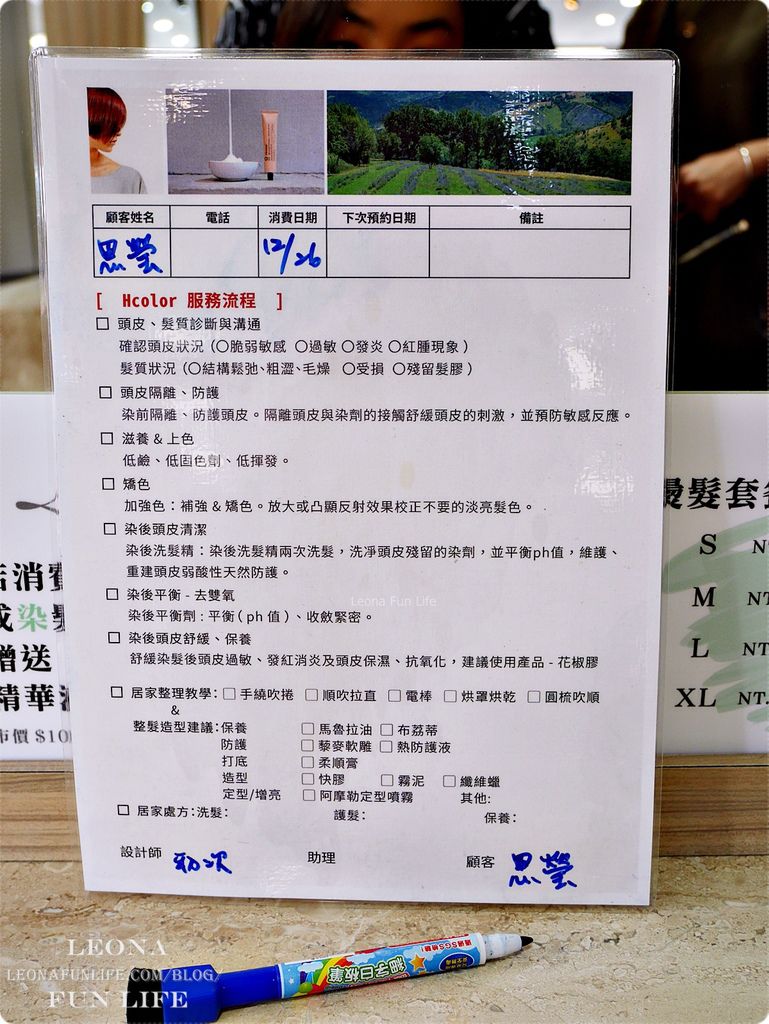 顧客姓名 電話 消費日期 下次預約日期 備註
思瑩 12/26
[ Hcolor 服務流程 ]
□ 頭皮、髮質診斷與溝通
確認頭皮狀況 (○脆弱敏感 ○過敏 ○發炎 ○紅腫現象 )
髮質狀況 (○結構鬆弛、粗澀、毛燥 ○受損 ○殘留髮膠 )
□ 頭皮隔離、防護
染前隔離、防護頭皮。隔離頭皮與染劑的接觸舒緩頭皮的刺激，並預防敏感反應。
□ 滋養 & 上色
低鹼、低固色劑、低揮發。
□ 矯色
加強色：補強 & 矯色。放大或凸顯反射效果校正不要的淡亮髮色。
□ 染後頭皮清潔
染後洗髮精：染後洗髮精兩次洗髮，洗凈頭皮殘留的染劑，並平衡ph值，維護、
重建頭皮弱酸性天然防護。
□ 染後平衡 - 去雙氧
染後平衡劑 : 平衡 ( ph 值 ) 、收斂緊密。
□ 染後頭皮舒緩、保養
舒緩染髮後頭皮過敏、發紅消炎及頭皮保濕、抗氧化，建議使用產品 - 花椒膠
□ 居家整理教學： □ 手繞吹捲 □ 順吹拉直 □ 電棒 □ 烘罩烘乾 □ 圓梳吹順
&
整髮造型建議：保養 □ 馬魯拉油 □ 布荔蒂
防護 □ 藜麥軟雕 □ 熱防護液
打底 □ 柔順膏
造型 □ 快膠 □ 霧泥 □ 纖維蠟
定型/增亮 □ 阿摩勒定型噴霧 其他:
□ 居家處方：洗髮： 護髮： 保養：
設計師 初次 助理 顧客 思瑩
Leona Fun Life
店消費
成染髮
贈送
精華
市價 $10
燙髮套餐
S N
M NT
L NT
XL NT.
細字白板筆
LEONA
LEONAFUNLIFE.COM/BLOG
FUN LIFE